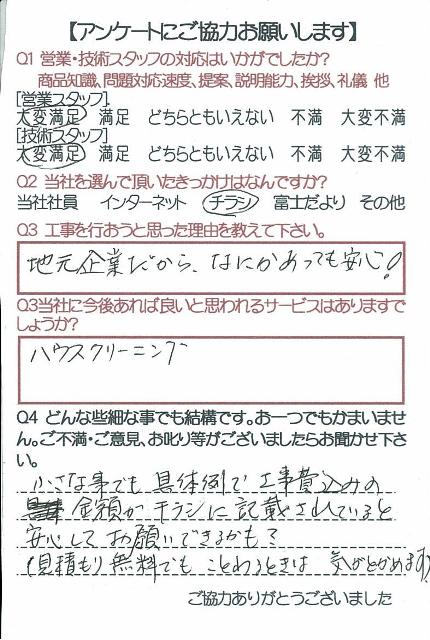 【アンケートにご協力お願いします】
Q1 営業・技術スタッフの対応はいかがでしたか?
商品知識、問題対応速度、提案、説明能力、挨拶、礼儀 他
[営業スタッフ]
大変満足 満足 どちらともいえない 不満 大変不満
[技術スタッフ]
大変満足 満足 どちらともいえない 不満 大変不満
Q2 当社を選んで頂いたきっかけはなんですか?
当社社員 インターネット チラシ 富士だより その他
Q3 工事を行おうと思った理由を教えて下さい。
地元企業だから、なにかあっても安心!
Q3当社に今後あれば良いと思われるサービスはありますで
しょうか?
ハウスクリーニング
Q4 どんな些細な事でも結構です。お一つでもかまいませ
ん。ご不満・ご意見、お叱り等がございましたらお聞かせ下さ
い。
小さな事でも 具体例で 工事費込みの
金額が チラシに 記載されていると
安心して お願いできるかも?
(見積もり無料でも ことわるときは 気がとがめます)
ご協力ありがとうございました